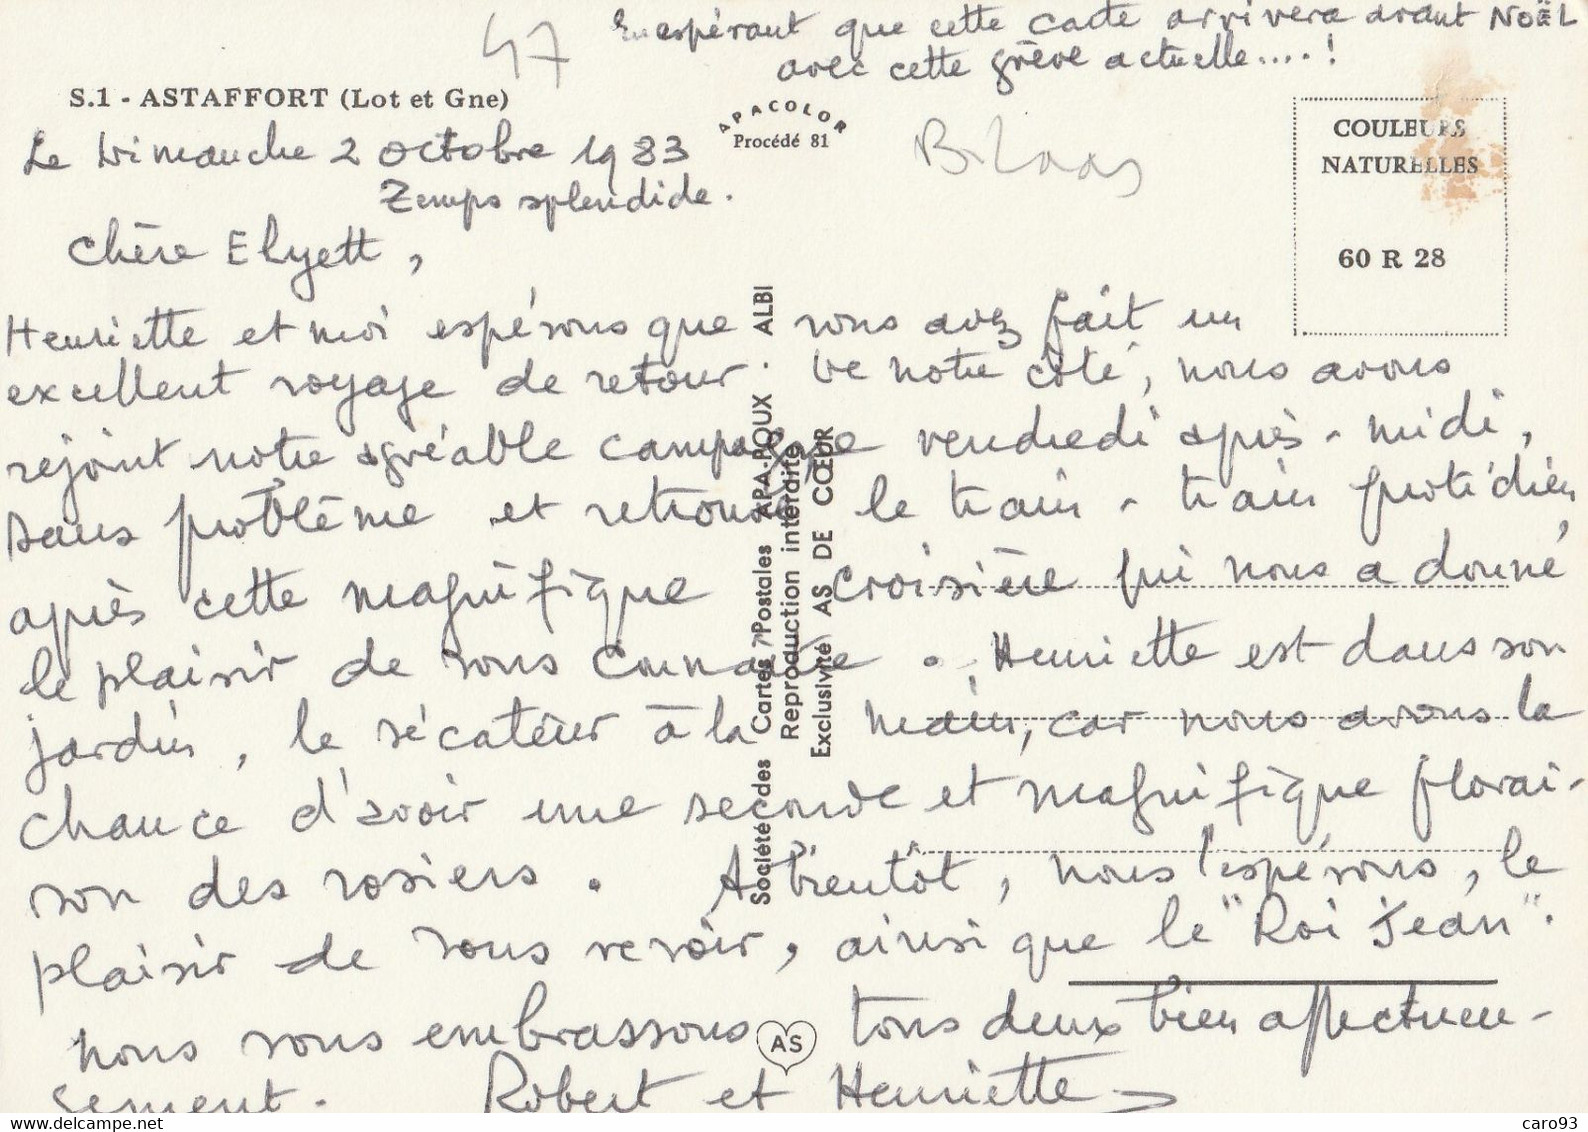 47
En espérant que cette carte arrivera avant Noël
avec cette grève actuelle....!
S.1 - ASTAFFORT (Lot et Gne)
APACOLOR
Procédé 81
COULEURS
NATURELLES
60 R 28
Le Dimanche 2 octobre 1983
Temps splendide.
Chère Elyett,
Henriette et moi espérons que vous avez fait un
excellent voyage de retour. De notre côté, nous avons
rejoint notre agréable campagne vendredi après-midi,
sans problème et retrouvé le train-train quotidien,
après cette magnifique croisière qui nous a donné
le plaisir de vous connaître. Henriette est dans son
jardin, le sécateur à la main, car nous avons la
chance d'avoir une seconde et magnifique florai-
son des rosiers. A bientôt, nous l'espérons, le
plaisir de vous revoir, ainsi que le "Roi Jean".
nous vous embrassons tous deux bien affectueu-
sement. Robert et Henriette
Société des Cartes Postales APA-POUX ALBI
Reproduction interdite
Exclusivité AS DE CŒUR
AS
www.delcampe.net
caro93